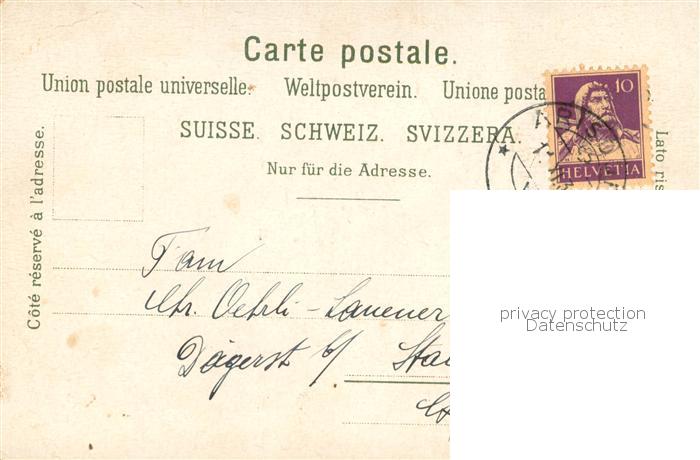 Carte postale.
Union postale universelle. Weltpostverein. Unione posta
SUISSE. SCHWEIZ. SVIZZERA.
Nur für die Adresse.
Côté réservé à l'adresse.
Lato ris
10
HELVETIA
Fam
Chr. Oehrli-Lauener
Dägerst b/ Sta
privacy protection
Datenschutz